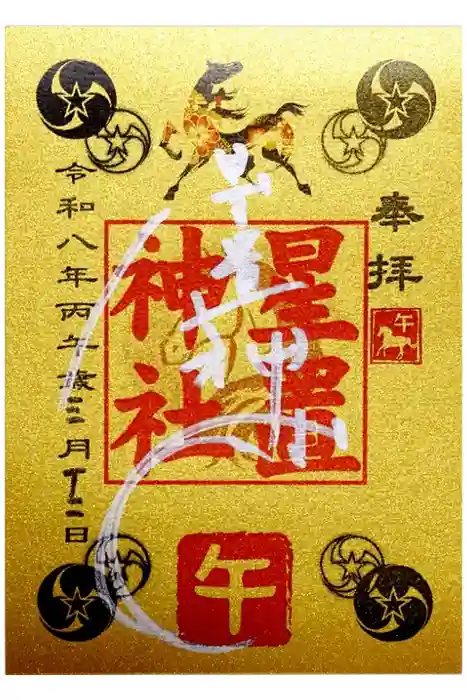 奉拝
午
星置
神社
午
令和八年丙午歳三月十二日